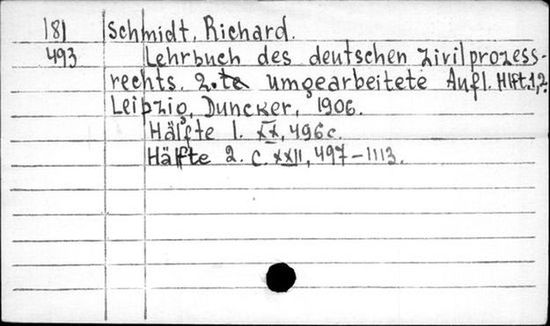 181 Schmidt, Richard.
493 Lehrbuch des deutschen Zivilprozess-
rechts. 2.te umgearbeitete Aufl. Hlft.1,2.
Leipzig, Duncker, 1906.
Hälfte 1. XX, 496 c.
Hälfte 2. C. XXII, 497-1113.